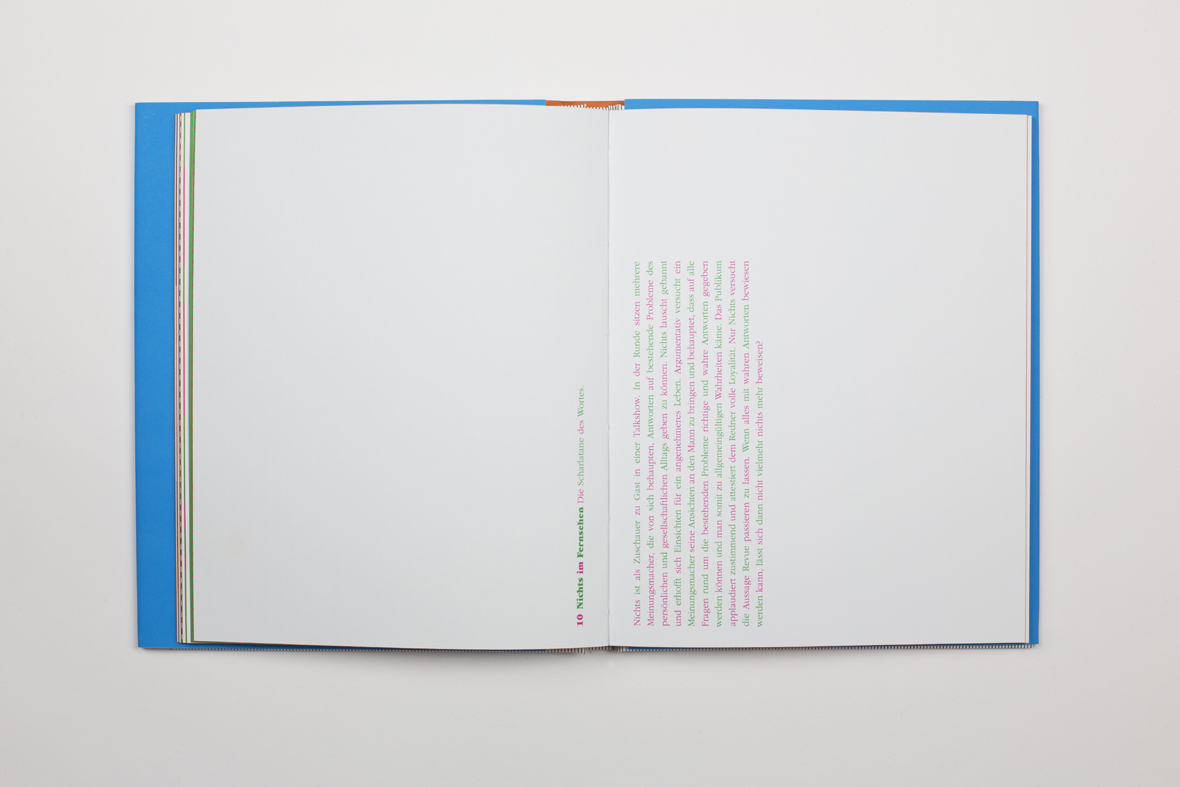 10 Nichts im Fernsehen Die Scharlatane des Wortes.
Nichts ist als Zuschauer zu Gast in einer Talkshow. In der Runde sitzen mehrere
Meinungsmacher, die von sich behaupten, Antworten auf bestehende Probleme des
persönlichen und gesellschaftlichen Alltags geben zu können. Nichts lauscht gebannt
und erhofft sich Einsichten für ein angenehmeres Leben. Argumentativ versucht ein
Meinungsmacher seine Ansichten an den Mann zu bringen und behauptet, dass auf alle
Fragen rund um die bestehenden Probleme richtige und wahre Antworten gegeben
werden können und man somit zu allgemeingültigen Wahrheiten käme. Das Publikum
applaudiert zustimmend und attestiert dem Redner volle Loyalität. Nur Nichts versucht
die Aussage Revue passieren zu lassen. Wenn alles mit wahren Antworten bewiesen
werden kann, lässt sich dann nicht vielmehr nichts mehr beweisen?